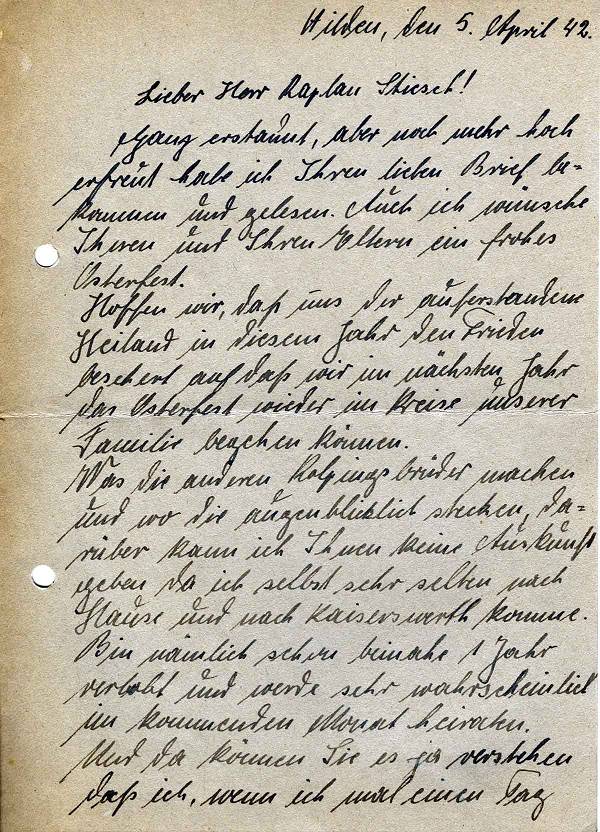 Hilden, den 5. April 42.
Lieber Herr Kaplan Stiesch!
Ganz erstaunt, aber noch mehr hoch
erfreut habe ich Ihren lieben Brief be-
kommen und gelesen. Auch ich wünsche
Ihnen und Ihren Eltern ein frohes
Osterfest.
Hoffen wir, daß uns der auferstandene
Heiland in diesem Jahr den Frieden
beschert auf daß wir im nächsten Jahr
das Osterfest wieder im Kreise unserer
Familie begehen können.
Was die anderen Kolpingsbrüder machen
und wo die augenblicklich stecken, da-
rüber kann ich Ihnen keine Auskunft
geben da ich selbst sehr selten nach
Hause und nach Kaiserswerth komme.
Bin nämlich schon beinahe 1 Jahr
verlobt und werde sehr wahrscheinlich
im kommenden Monat heiraten.
Und da können Sie es ja verstehen
daß ich, wenn ich mal einen Tag